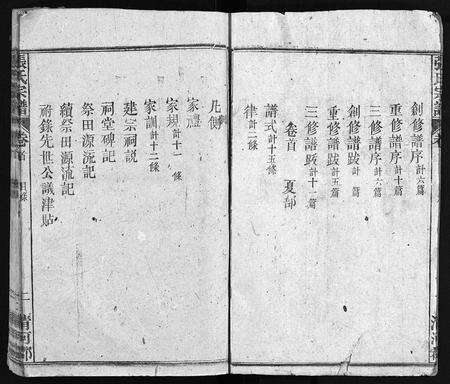 張氏宗譜 卷
創修譜序計六篇
重修譜序計十篇
三修譜序計六篇
創修譜跋計 篇
重修譜跋計五篇
三修譜跋計十一篇
卷首 夏部
譜式計十五條
律計二條
凡例
家禮
家規計十一條
家訓計十二條
建宗祠説
祠堂碑記
祭田源流記
續祭田源流記
祔錄先世公議津貼
張氏宗譜 卷首 目錄 二 清河郡